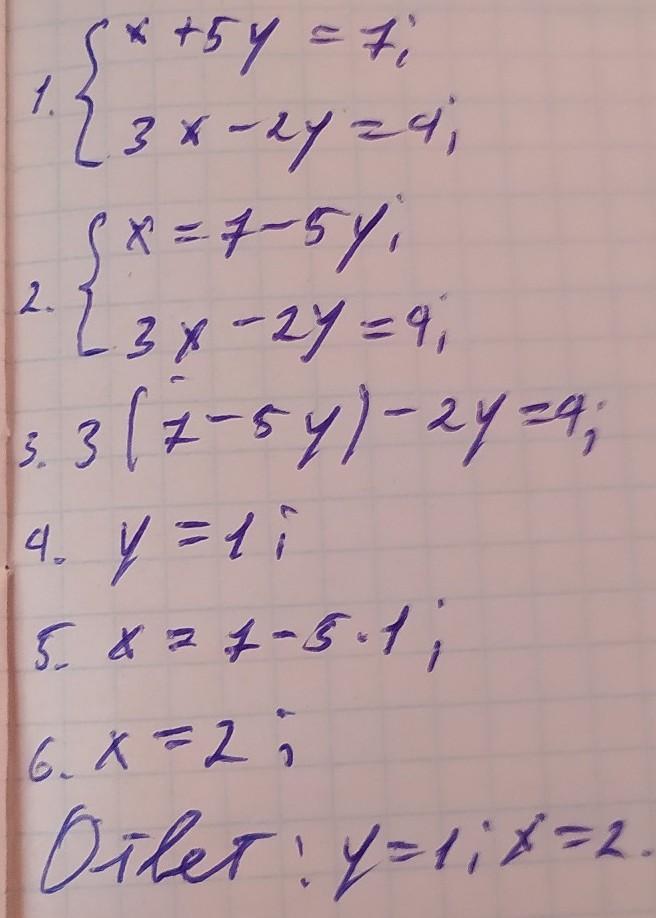 1. { x + 5y = 7;
3x - 2y = 4;
2. { x = 7 - 5y;
3x - 2y = 4;
3. 3(7 - 5y) - 2y = 4;
4. y = 1;
5. x = 7 - 5 · 1;
6. x = 2;
Ответ: y = 1; x = 2.